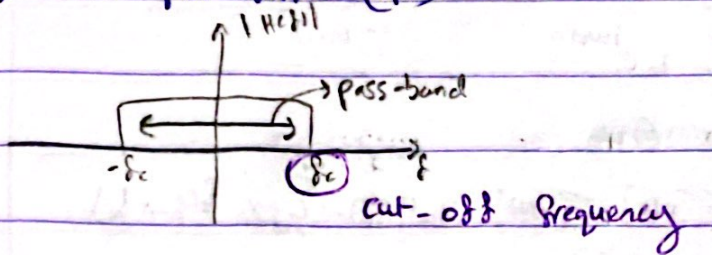 |H(f)|
pass-band
-fc
fc
f
cut-off frequency